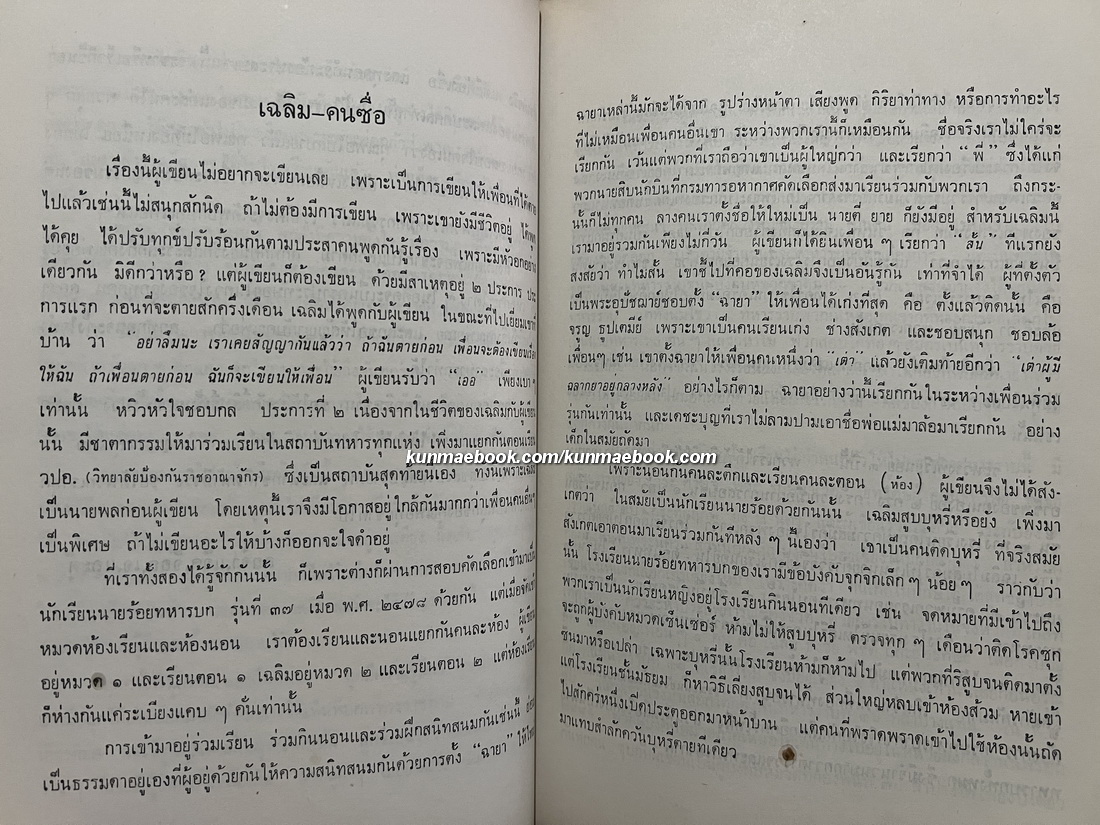 เฉลิม-คนซื่อ
เรื่องนี้ผู้เขียนไม่อยากจะเขียนเลย เพราะเป็นการเขียนให้เพื่อนที่ได้ตาย
ไปแล้วเช่นนี้ไม่สนุกสักนิด ถ้าไม่ต้องมีการเขียน เพราะเขายังมีชีวิตอยู่ ได้พูด
ได้คุย ได้ปรับทุกข์ปรับร้อนกันตามประสาคนพูดกันรู้เรื่อง เพราะมีหัวอกอย่าง
เดียวกัน มิดีกว่าหรือ? แต่ผู้เขียนก็ต้องเขียน ด้วยมีสาเหตุอยู่ ๒ ประการ ประ
การแรก ก่อนที่จะตายสักครึ่งเดือน เฉลิมได้พูดกับผู้เขียน ในขณะที่ไปเยี่ยมเขาที่
บ้าน ว่า “อย่าลืมนะ เราเคยสัญญากันแล้วว่า ถ้าฉันตายก่อน เพื่อนจะต้องเขียนเรื่อง
ให้ฉัน ถ้าเพื่อนตายก่อน ฉันก็จะเขียนให้เพื่อน” ผู้เขียนรับว่า “เออ” เพียงเบา ๆ
เท่านั้น หวิวหัวใจชอบกล ประการที่ ๒ เนื่องจากในชีวิตของเฉลิมกับผู้เขียน
นั้น มีชาตากรรมให้มาร่วมเรียนในสถาบันทหารทุกแห่ง เพิ่งมาแยกกันตอนเรียน
วปอ. (วิทยาลัยป้องกันราชอาณาจักร) ซึ่งเป็นสถาบันสุดท้ายนี่เอง ทั้งนี้เพราะเฉลิม
เป็นนายพลก่อนผู้เขียน โดยเหตุนี้เราจึงมีโอกาสอยู่ใกล้กันมากกว่าเพื่อนคนอื่น ๆ
เป็นพิเศษ ถ้าไม่เขียนอะไรให้บ้างก็ออกจะใจดำอยู่
ที่เราทั้งสองได้รู้จักกันนั้น ก็เพราะต่างก็ผ่านการสอบคัดเลือกเข้ามาเป็น
นักเรียนนายร้อยทหารบก รุ่นที่ ๓๗ เมื่อ พ.ศ. ๒๔๗๘ ด้วยกัน แต่เมื่อจัดเข้า
หมวดห้องเรียนและห้องนอน เราต้องเรียนและนอนแยกกันคนละห้อง ผู้เขียน
อยู่หมวด ๑ และเรียนตอน ๑ เฉลิมอยู่หมวด ๒ และเรียนตอน ๒ แต่ห้องเรียน
ก็ห่างกันแค่ระเบียงแคบ ๆ คั่นเท่านั้น
การเข้ามาอยู่ร่วมเรียน ร่วมกินนอนและร่วมฝึกสนิทสนมกันเช่นนี้
เป็นธรรมดาอยู่เองที่ผู้อยู่ด้วยกันให้ความสนิทสนมกันด้วยการตั้ง “ฉายา” ให้ใหม่
ฉายาเหล่านี้มักจะได้จาก รูปร่างหน้าตา เสียงพูด กิริยาท่าทาง หรือการทำอะไร
ที่ไม่เหมือนเพื่อนคนอื่นเขา ระหว่างพวกเรานี้ก็เหมือนกัน ชื่อจริงเราไม่ใคร่จะ
เรียกกัน เว้นแต่พวกที่เราถือว่าเขาเป็นผู้ใหญ่กว่า และเรียกว่า “พี่” ซึ่งได้แก่
พวกนายสิบนักบินที่กรมทารอหากาศคัดเลือกส่งมาเรียนร่วมกับพวกเรา ถึงกระ-
นั้นก็ไม่ทุกคน ลางคนเราตั้งชื่อให้ใหม่เป็น นายตี๋ ยาย ก็ยังมีอยู่ สำหรับเฉลิมนี้
เรามาอยู่รวมกันเพียงไม่กี่วัน ผู้เขียนก็ได้ยินเพื่อน ๆ เรียกว่า “สั้น” ทีแรกยัง
สงสัยว่า ทำไมสั้น เขาชี้ไปที่คอของเฉลิมจึงเป็นอันรู้กัน เท่าที่จำได้ ผู้ที่ตั้งตัว
เป็นพระอุปัชฌาย์ชอบตั้ง “ฉายา” ให้เพื่อนได้เก่งที่สุด คือ ตั้งแล้วติดนั้น คือ
จรูญ ธูปเตมีย์ เพราะเขาเป็นคนเรียนเก่ง ช่างสังเกต และชอบสนุก ชอบล้อ
เพื่อนๆ เช่น เขาตั้งฉายาให้เพื่อนคนหนึ่งว่า “เต่า” แล้วยังเติมท้ายอีกว่า “เต่าผู้มี
ฉลากยาอยู่กลางหลัง” อย่างไรก็ตาม ฉายาอย่างว่านี้เรียกกันในระหว่างเพื่อนร่วม
รุ่นกันเท่านั้น และเดชะบุญที่เราไม่ลามปามเอาชื่อพ่อแม่มาล้อมาเรียกกัน อย่าง
เด็กในสมัยถัดมา
kunmaebook.com/kunmaebook.com
เพราะนอนกันคนละตึกและเรียนคนละตอน (ห้อง) ผู้เขียนจึงไม่ได้สัง-
เกตว่า ในสมัยเป็นนักเรียนนายร้อยด้วยกันนั้น เฉลิมสูบบุหรี่หรือยัง เพิ่งมา
สังเกตเอาตอนมาเรียนร่วมกันทีหลัง ๆ นี้เองว่า เขาเป็นคนติดบุหรี่ ที่จริงสมัย
นั้น โรงเรียนนายร้อยทหารบกของเรามีข้อบังคับจุกจิกเล็ก ๆ น้อย ๆ ราวกับว่า
พวกเราเป็นนักเรียนหญิงอยู่โรงเรียนกินนอนทีเดียว เช่น จดหมายที่มีเข้าไปถึง
จะถูกผู้บังคับหมวดเซ็นเซ่อร์ ห้ามไม่ให้สูบบุหรี่ ตรวจทุก ๆ เดือนว่าติดโรคซุก
ซนมาหรือเปล่า เฉพาะบุหรี่นั้นโรงเรียนห้ามก็ห้ามไป แต่พวกที่ริสูบจนติดมาตั้ง
แต่โรงเรียนชั้นมัธยม ก็หาวิธีเลี่ยงสูบจนได้ ส่วนใหญ่หลบเข้าห้องส้วม หายเข้า
ไปสักครู่หนึ่งเปิดประตูออกมาหน้าบาน แต่คนที่พราดพราดเข้าไปใช้ห้องนั้นถัด
มาแทบสำลักควันบุหรี่ตายทีเดียว